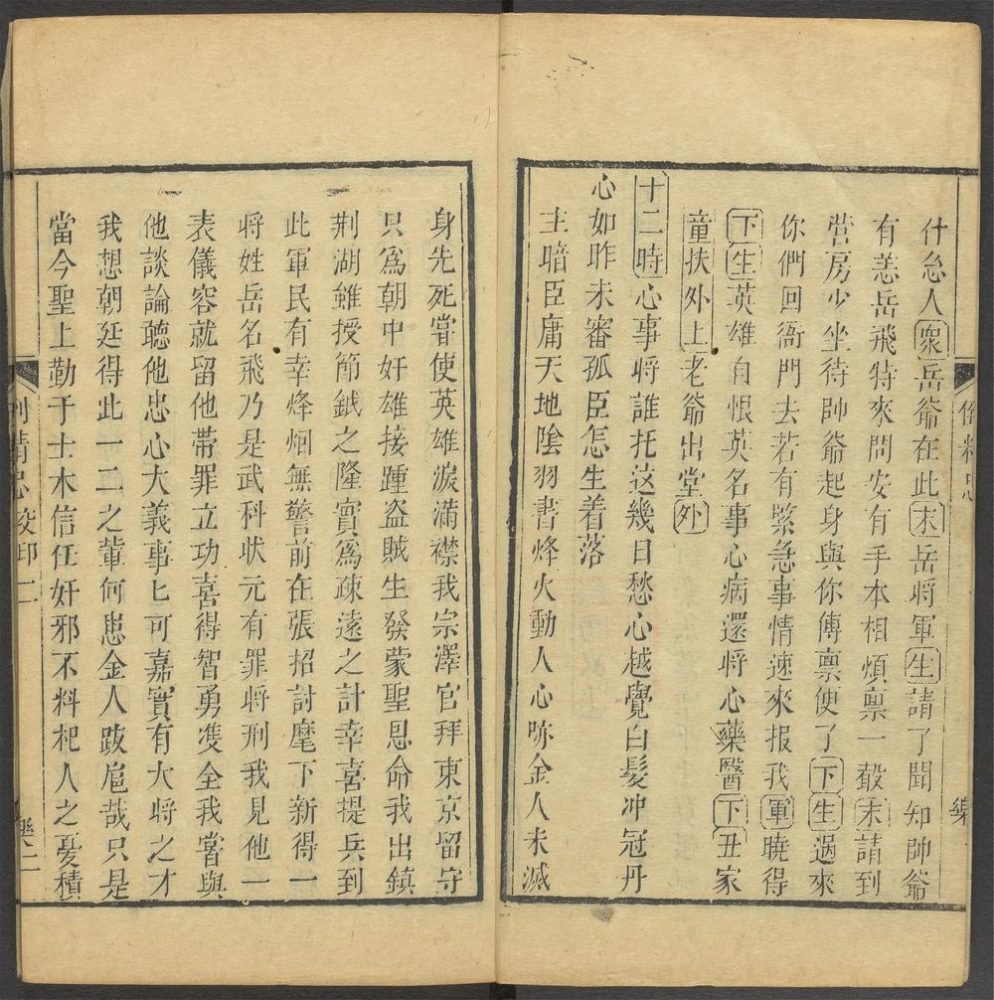 什怂人衆岳爺在此末岳将軍生請了聞知帥爺
有恙岳飛特來問安有手本相煩禀一敲末請到
营房少坐待帥爺起身與你傳禀便了下生過來
你們回衙門去若有緊急事情速來报我軍曉得
下生英雄自恨英名事心病還将心藥醫下丑家
童扶外上老爺出堂外
十二時心事将誰托这幾日愁心越覺白髮冲冠丹
心如昨未審孤臣怎生着落
主暗臣庸天地陰羽書烽火動人心咏金人未滅
身先死甞使英雄淚滿襟我宗澤官拜東京留守
只爲朝中奸雄接踵盗賊生發蒙聖恩命我出鎮
荆湖雖授節鉞之隆實爲疎遠之計幸喜提兵到
此軍民有幸烽烟無警前在張招討麾下新得一
将姓岳名飛乃是武科状元有罪将刑我見他一
表儀容就留他帶罪立功喜得智勇㕠全我甞與
他談論聽他忠心大義事匕可嘉實有大将之才
我想朝廷得此一二之軰何患金人跋扈哉只是
當今聖上勤于土木信任奸邪不料杞人之憂積